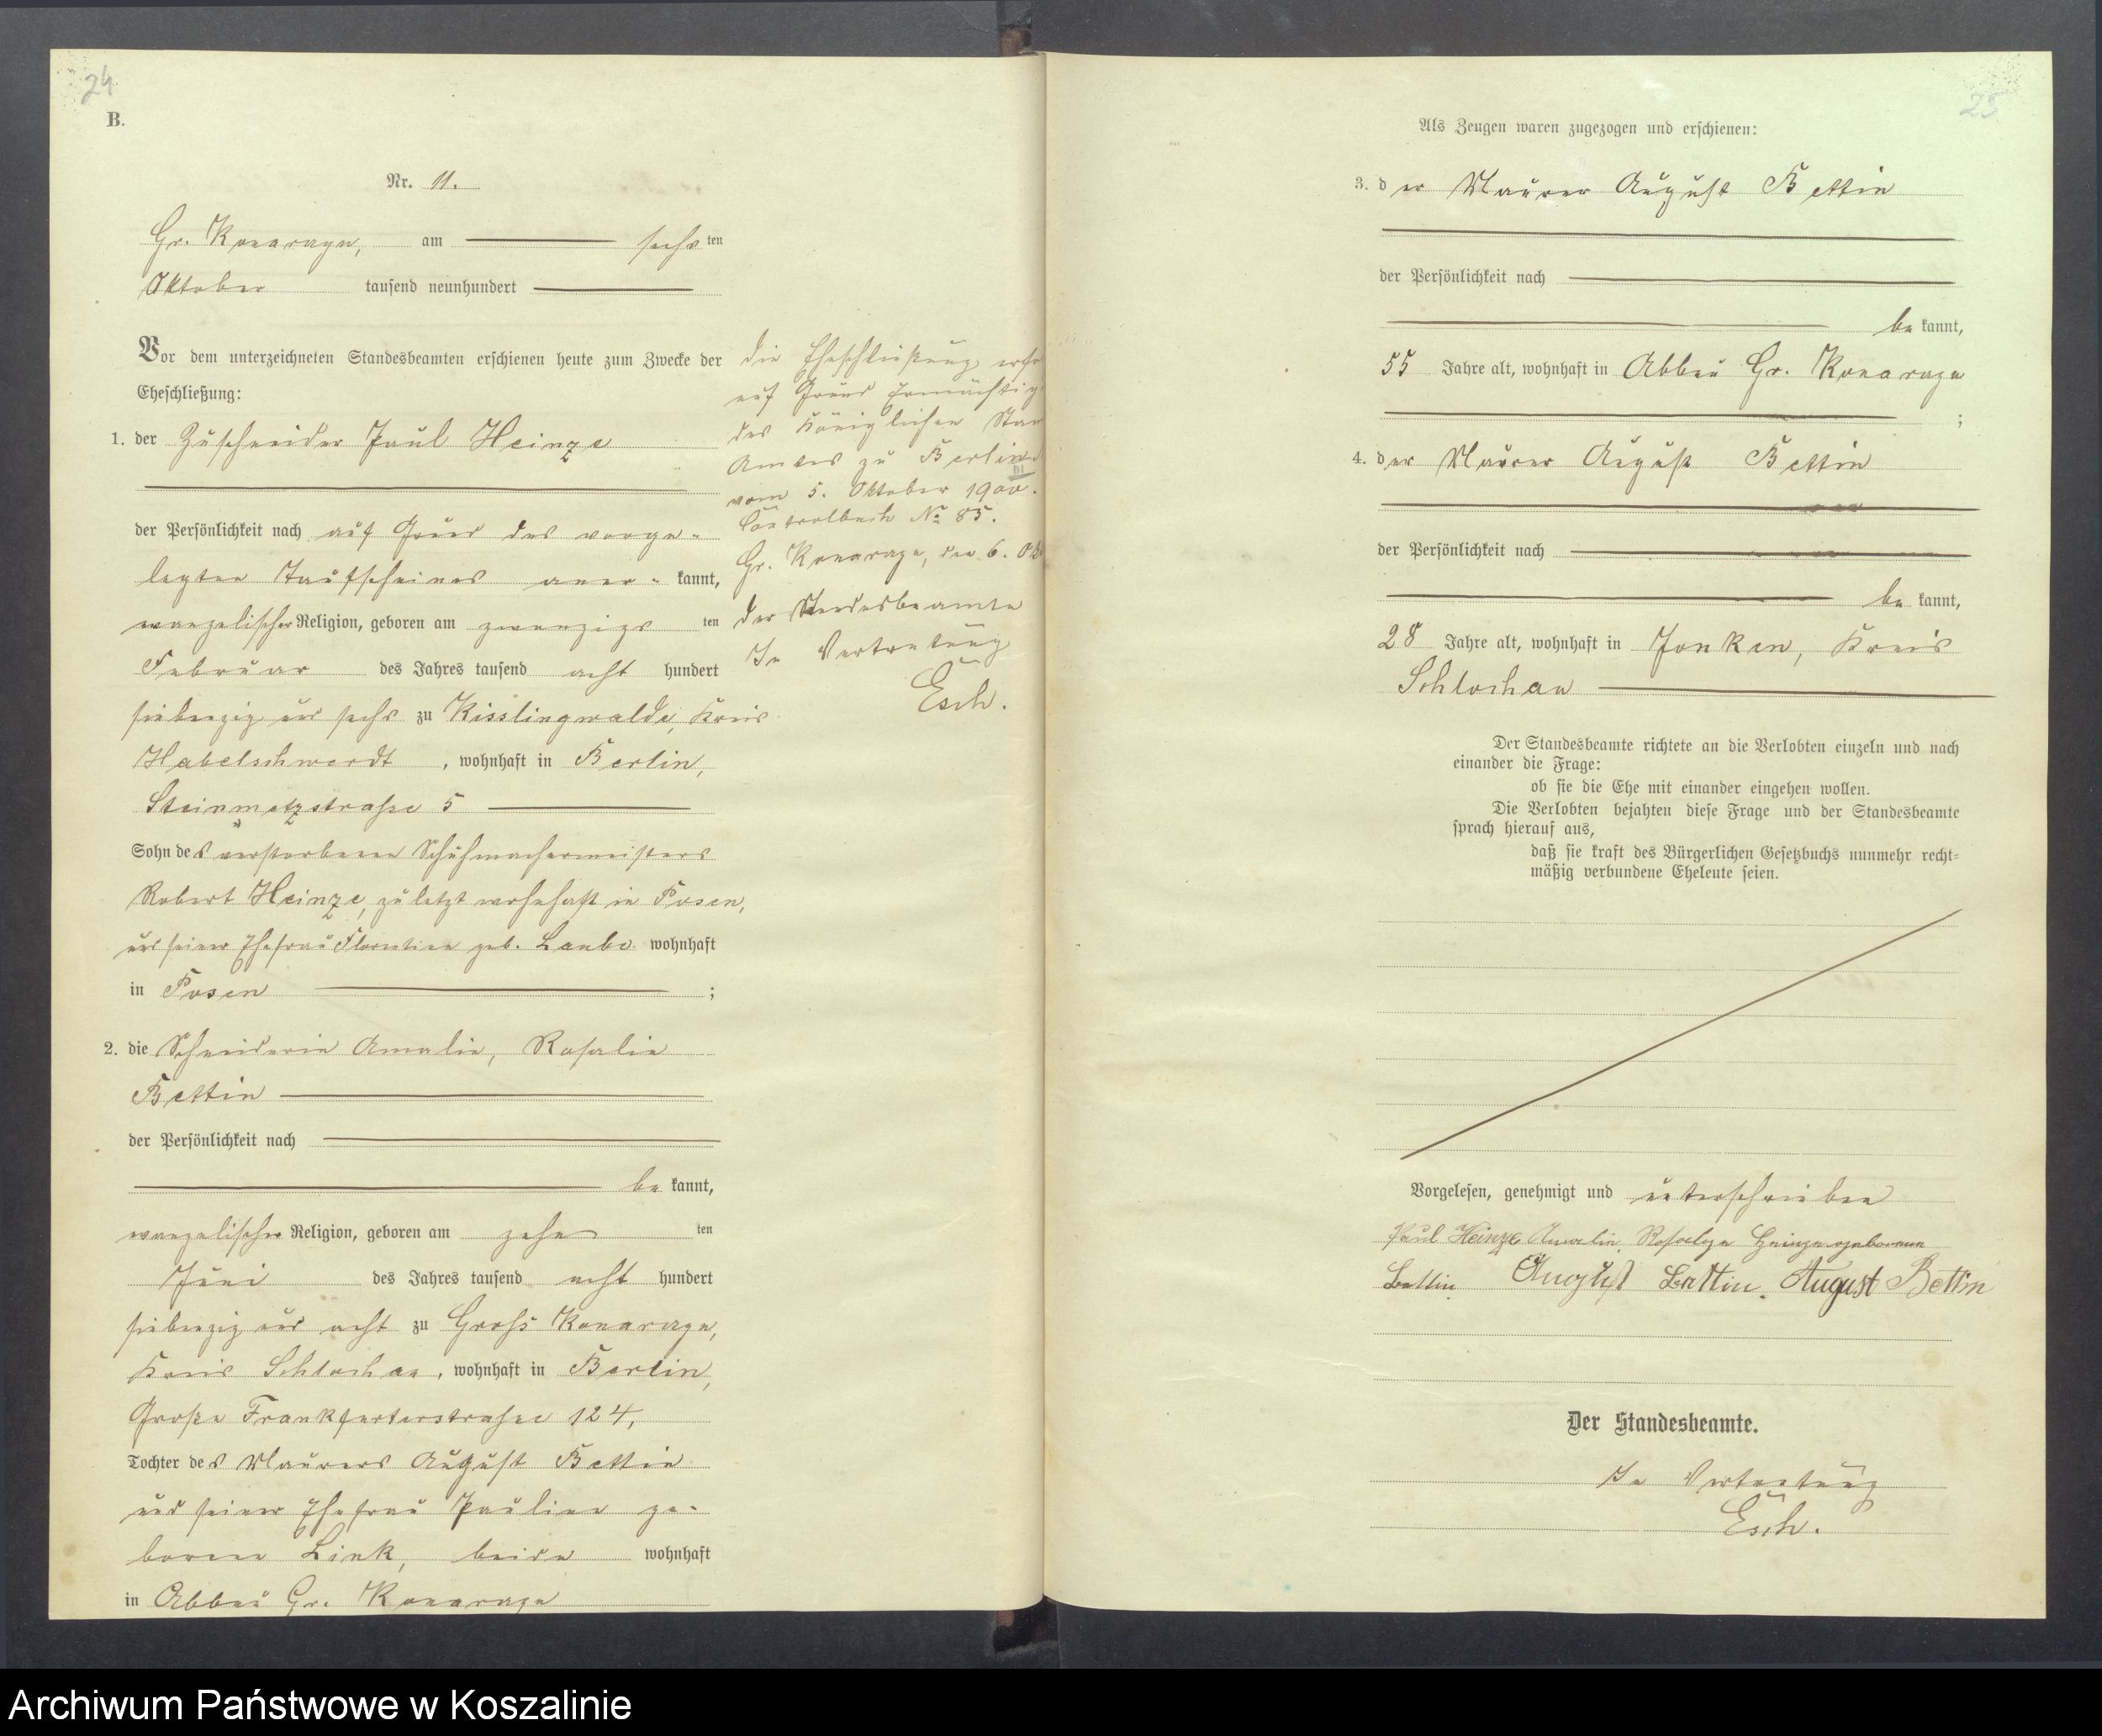 24
B.
Nr. 11.
Gr. Konarzyn, am sechsten
Oktober tausend neunhundert
Vor dem unterzeichneten Standesbeamten erschienen heute zum Zwecke der
Eheschließung:
1. der Zuschneider Paul Heinze
der Persönlichkeit nach auf Grund des vorge-
legten Taufscheines aner- kannt,
evangelischer Religion, geboren am zwanzigs ten
Februar des Jahres tausend acht hundert
siebenzig und sechs zu Kisslingwalde, Kreis
Habelschwerdt, wohnhaft in Berlin,
Steinmetzstraße 5
Sohn des verstorbenen Schuhmachermeisters
Robert Heinze, zuletzt wohnhaft in Posen,
und seiner Ehefrau Florentine geb. Laube wohnhaft
in Posen ;
2. die Schneiderin Amalie, Rosalie
Bettin
der Persönlichkeit nach
be kannt,
evangelischer Religion, geboren am zehn ten
Juni des Jahres tausend acht hundert
siebenzig und acht zu Groß Konarzyn,
Kreis Schlochau, wohnhaft in Berlin,
Große Frankfurterstraße 124,
Tochter des Maurers August Bettin
und seiner Ehefrau Pauline ge-
borene Link, beide wohnhaft
in Abbau Gr. Konarzyn
Die Eheschließung erfo
auf Grund Ermächtig
des Königlichen Stan
Amtes zu Berlin
III
vom 5. Oktober 1900.
Controlbuch No 85.
Gr. Konarzyn, den 6. Okt
Der Standesbeamte
In Vertretung
Esch.
25
Als Zeugen waren zugezogen und erschienen:
3. der Maurer August Bettin
der Persönlichkeit nach
be kannt,
55 Jahre alt, wohnhaft in Abbau Gr. Konarzyn
;
4. der Maurer August Bettin
der Persönlichkeit nach
be kannt,
28 Jahre alt, wohnhaft in Kreis
Schlochau
Der Standesbeamte richtete an die Verlobten einzeln und nach
einander die Frage:
ob sie die Ehe mit einander eingehen wollen.
Die Verlobten bejahten diese Frage und der Standesbeamte
sprach hierauf aus,
daß sie kraft des Bürgerlichen Gesetzbuchs nunmehr recht-
mäßig verbundene Eheleute seien.
Vorgelesen, genehmigt und unterschrieben
Paul Heinze Amalie, Heinze geborene
Bettin. August Bettin. August Bettin
Der Standesbeamte.
In Vertretung
Esch.
Archiwum Państwowe w Koszalinie